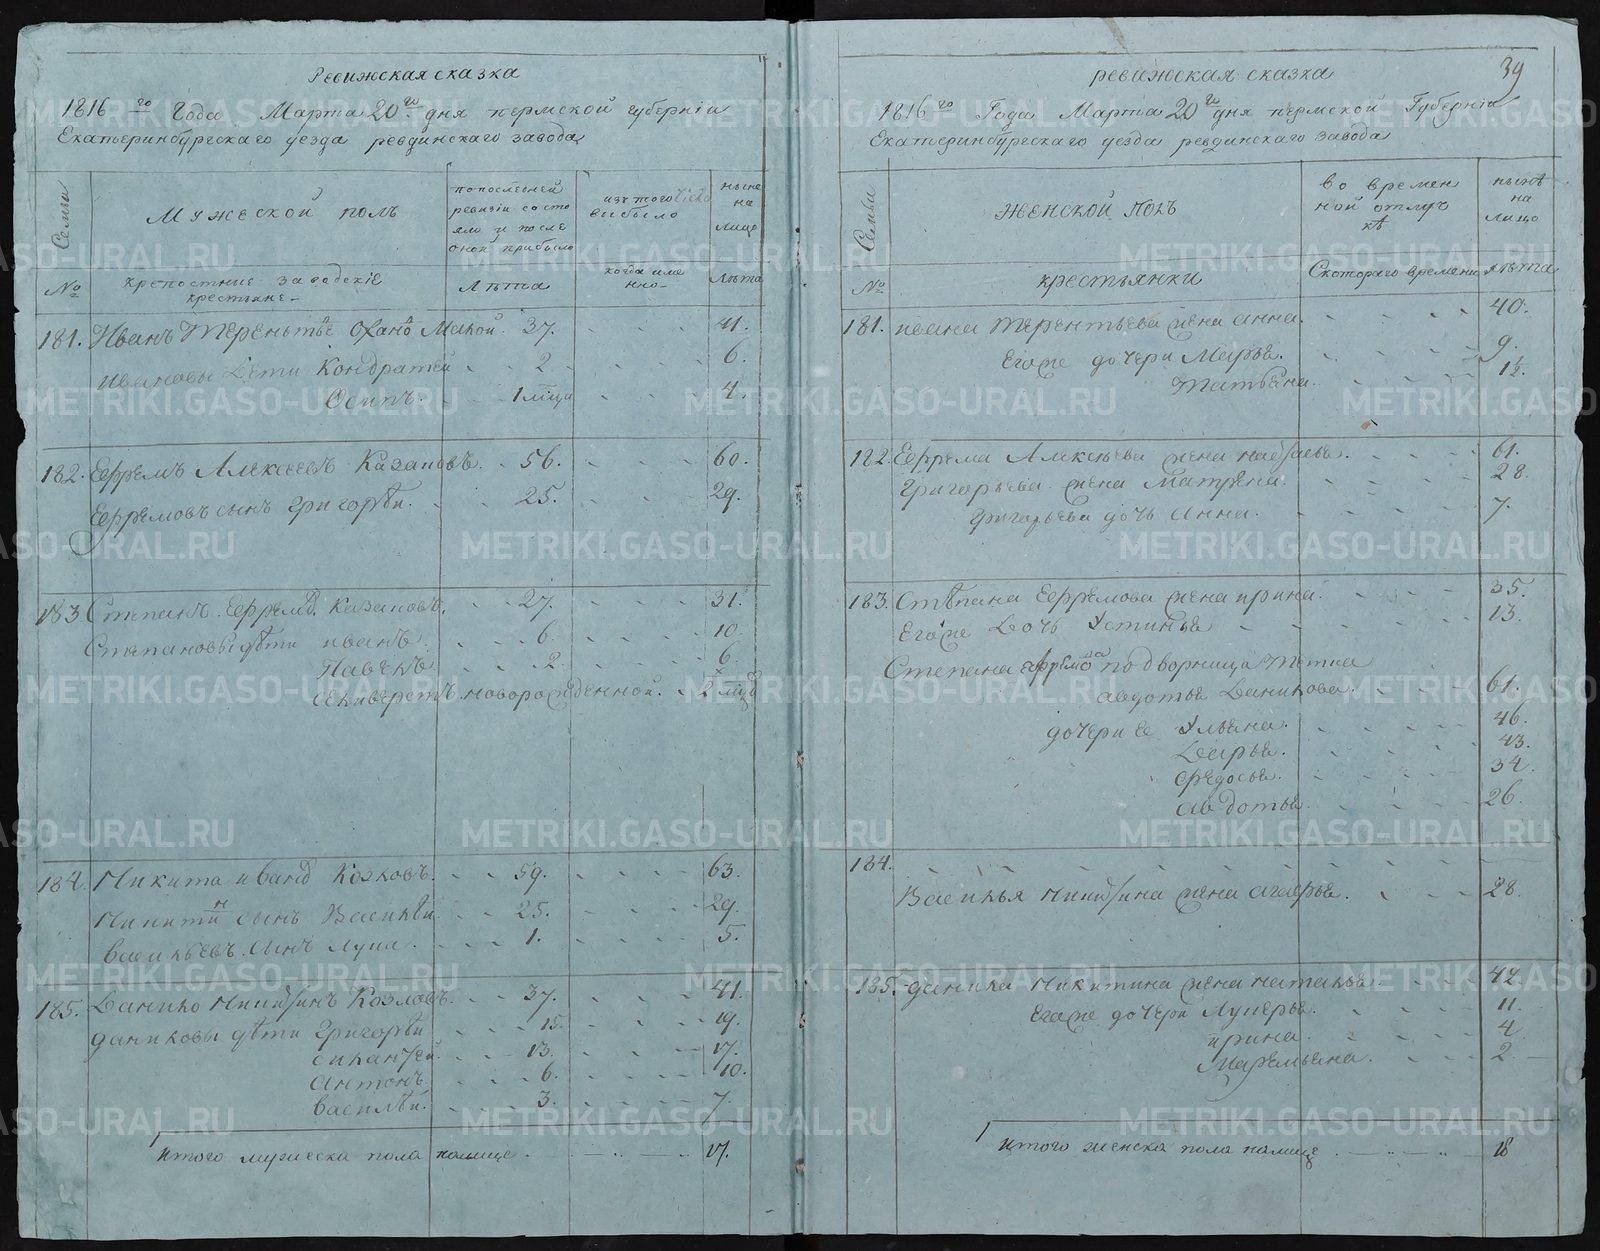 Ревижская сказка
1816го Года Марта 20го дня пермской губернiи
Екатеринбургскаго уезда ревдинскаго завода
Семьи
Мужеской полъ
попоследней ревизiи состояло и после оной прибыло
изъ того числа выбыло
ныне на лицо
№
крепостные заводскiе крестьяне
Лѣта
когда именно
Лѣта
181. Иванъ Тереньтьев 37. 41.
Ивановы дети Кондратей 2 6.
Осипъ. 1 мца 4.
182. Ефремъ Алексеевъ Казановъ. 56. 60.
Ефремовъ сынъ Григорѣй. 25. 29.
183. Степанъ Ефремов Казановъ. 27. 31.
Степановы дѣти иванъ. 6. 10
Павелъ 2. 6.
Селиверстъ новорожденной. 2 мцa
184. Никита иванов Козловъ. 59. 63.
Никитин сынъ Василѣи 25. 29.
Васильевъ сынъ Лука. 1. 5.
185. Данило Никитинъ Козловъ. 37. 41.
даниловы дѣти Григорѣи 15. 19.
13. 17.
Антонъ. 6. 10.
Василѣи. 3. 7.
итого мужеска пола налице 17.
39
ревижская сказка
1816го Года Марта 20го дня пермской Губернiи
Екатеринбургскаго уезда ревдинскаго завода
Семьи
Женской Полъ
во временной отлучкѣ
нынѣ на лицо
№
крестьянки
Скотораго времени
лѣта
181. ивана Терентьева жена анна. 40.
Егоже дочери Марья. 9.
Татьяна. 1½.
182. Ефрема Алексѣева жена 61.
Григорьева жена Матрена. 28.
Григорьева дочь Анна. 7.
183. Степана Ефремова жена ирина. 35.
Егоже дочь Устинья 13.
Степана ефремова подворница тетка
авдотья Данилова. 61.
дочери ее Ульяна. 46.
Дарья. 43.
Федосья. 34.
авдотья 26.
184.
Василья Никитина жена 28.
185. данила Никитина жена наталья. 42
Егоже дочери Лукерья. 11.
ирина. 4.
Маремьяна. 2
итого женска пола налице 18
METRIKI.GASO-URAL.RU